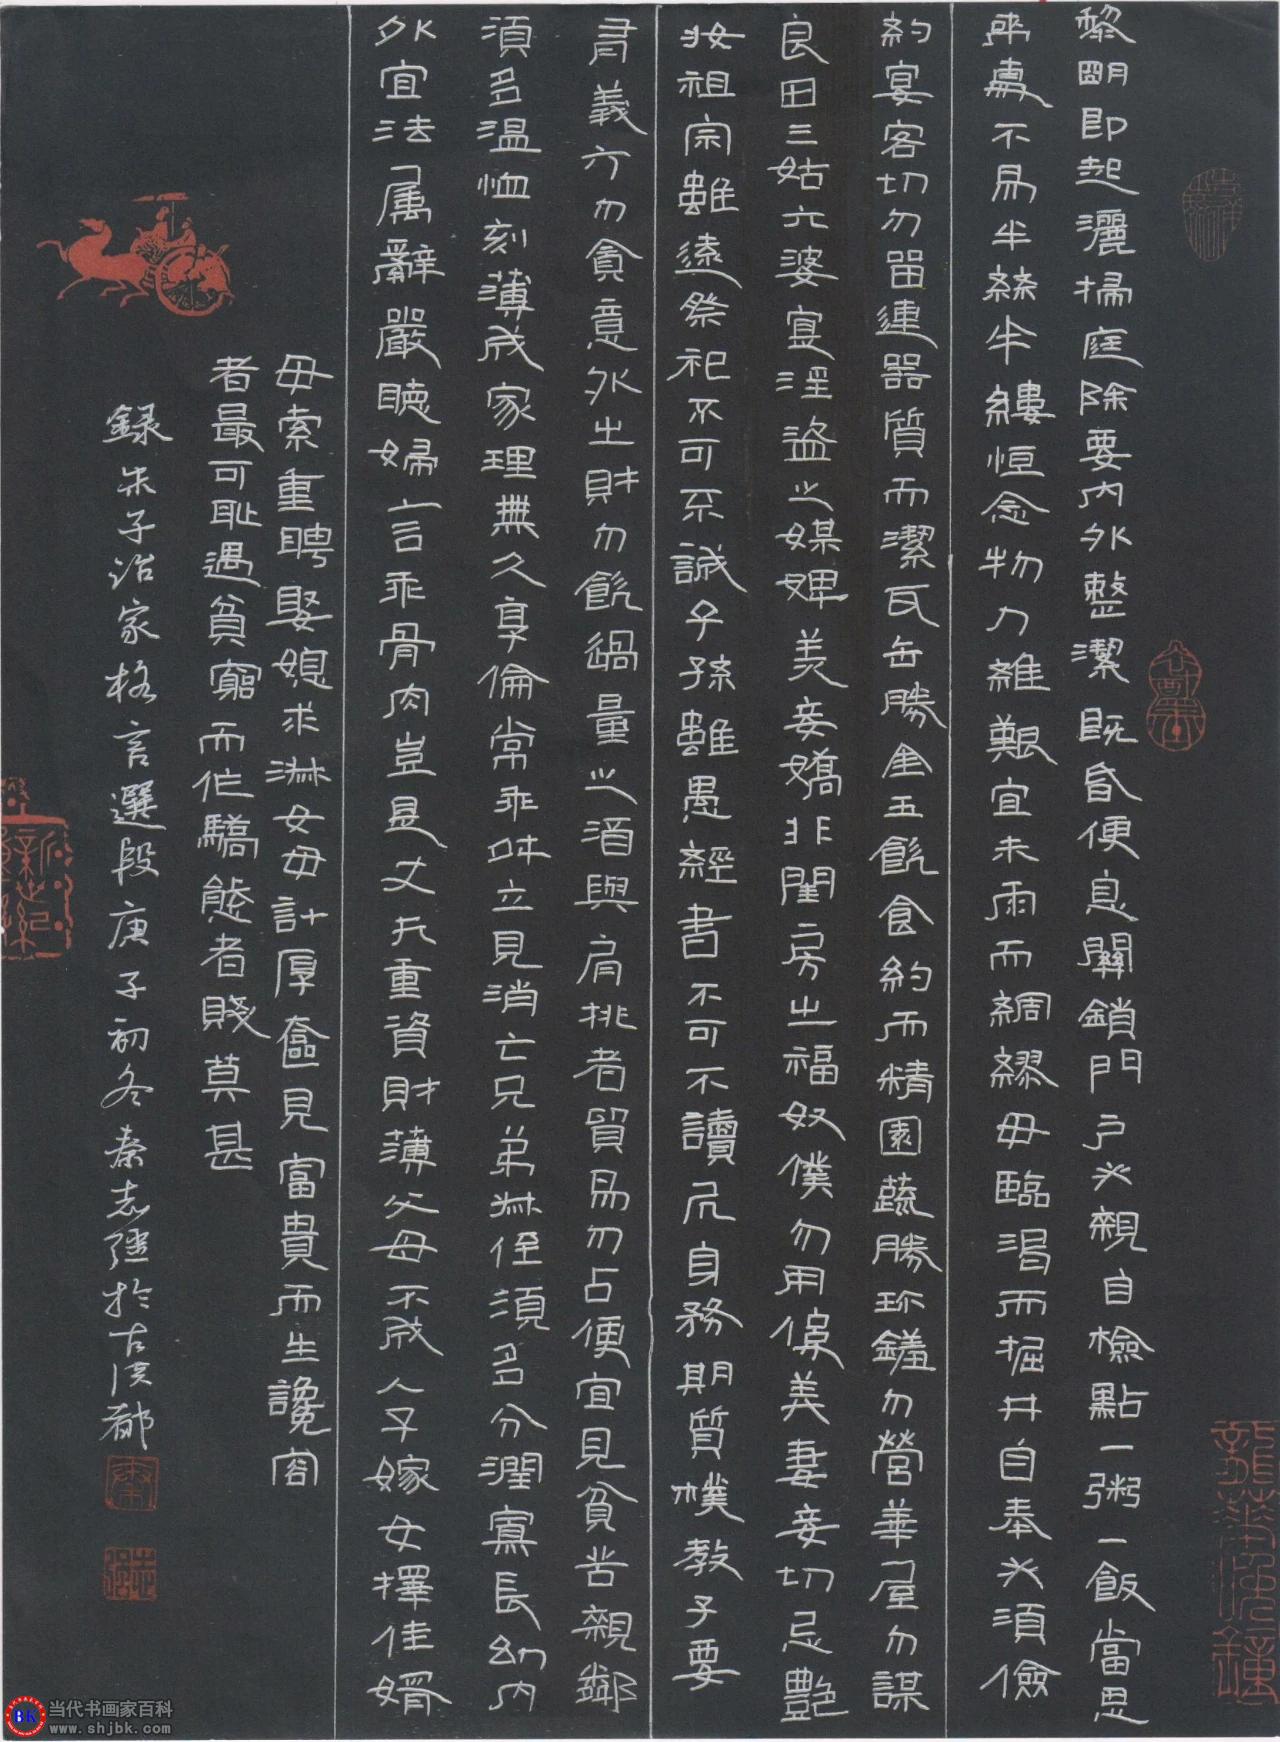 黎明即起灑掃庭除要内外整潔既昏便息關鎖門户必親自檢點一粥一飯當思
来處不易半絲半縷恒念物力維艱宜未雨而綢繆毋臨渴而掘井自奉必須儉
約宴客切勿留連器質而潔瓦缶勝金玉飲食約而精園蔬勝珍饈勿營華屋勿謀
良田三姑六婆寔淫盜之媒婢美妾嬌非閨房之福奴僕勿用俊美妻妾切忌艷
妝祖宗雖遠祭祀不可不誠子孫雖愚經書不可不讀居身務期質樸教子要
有義方勿貪意外之財勿飲過量之酒與肩挑者貿易勿占便宜見貧苦親鄰
須多温恤刻薄成家理無久享倫常乖舛立見消亡兄弟叔侄須多分潤寡長幼内
外宜法属辭嚴聽婦言乖骨肉豈是丈夫重資財薄父母不成人子嫁女擇佳婿
毋索重聘娶媳求淑女毋計厚奩見富貴而生讒容
者最可耻遇貧窮而作驕態者賤莫甚
録朱子治家格言選段庚子初冬秦志强於古漢都
新世紀
龍華晚鐘
秦
志强
BK
当代书画家百科
www.shjbk.com